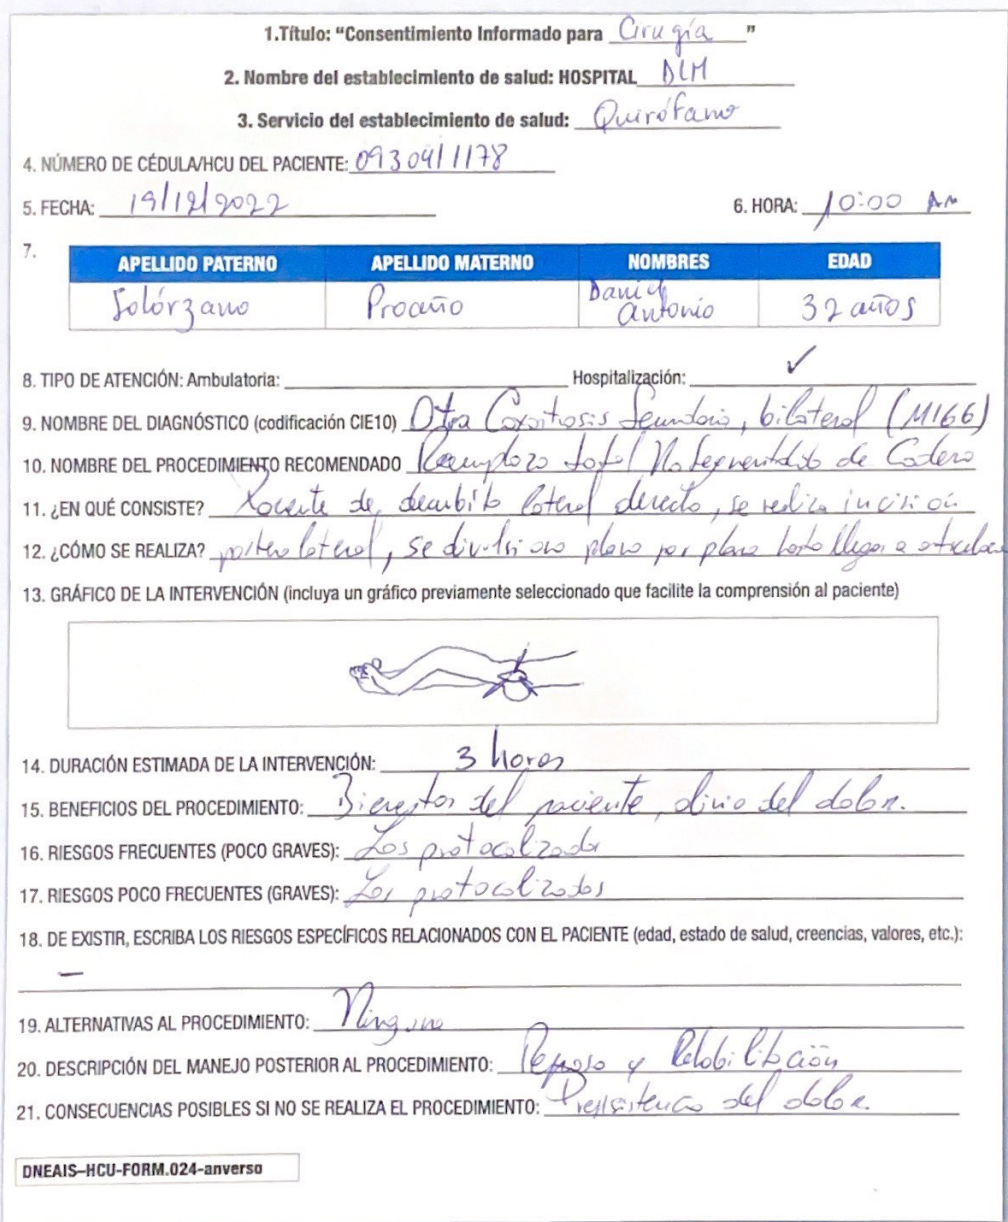 1.Título: “Consentimiento Informado para Cirugía ”
2. Nombre del establecimiento de salud: HOSPITAL DLM
3. Servicio del establecimiento de salud: Quirófano
4. NÚMERO DE CÉDULA/HCU DEL PACIENTE: 0930411178
5. FECHA: 19/12/2022 6. HORA: 10:00 AM
7.
APELLIDO PATERNO APELLIDO MATERNO NOMBRES EDAD
Solórzano Proaño Daniel Antonio 32 años
8. TIPO DE ATENCIÓN: Ambulatoria: Hospitalización: ✓
9. NOMBRE DEL DIAGNÓSTICO (codificación CIE10) Otra Coxartrosis Secundaria, bilateral (M166)
10. NOMBRE DEL PROCEDIMIENTO RECOMENDADO Reemplazo total No de Cadera
11. ¿EN QUÉ CONSISTE? Paciente de decubito lateral derecho, se realiza incisión
12. ¿CÓMO SE REALIZA? postero lateral, se divulsiona plano por plano hasta llegar a
13. GRÁFICO DE LA INTERVENCIÓN (incluya un gráfico previamente seleccionado que facilite la comprensión al paciente)
14. DURACIÓN ESTIMADA DE LA INTERVENCIÓN: 3 horas
15. BENEFICIOS DEL PROCEDIMIENTO: Bienestar del paciente, alivio del dolor.
16. RIESGOS FRECUENTES (POCO GRAVES): Los protocolizados
17. RIESGOS POCO FRECUENTES (GRAVES): Los protocolizados
18. DE EXISTIR, ESCRIBA LOS RIESGOS ESPECÍFICOS RELACIONADOS CON EL PACIENTE (edad, estado de salud, creencias, valores, etc.):
–
19. ALTERNATIVAS AL PROCEDIMIENTO: Ninguno
20. DESCRIPCIÓN DEL MANEJO POSTERIOR AL PROCEDIMIENTO: Reposo y Rehabilitación
21. CONSECUENCIAS POSIBLES SI NO SE REALIZA EL PROCEDIMIENTO: Persistencia del dolor.
DNEAIS–HCU-FORM.024-anverso